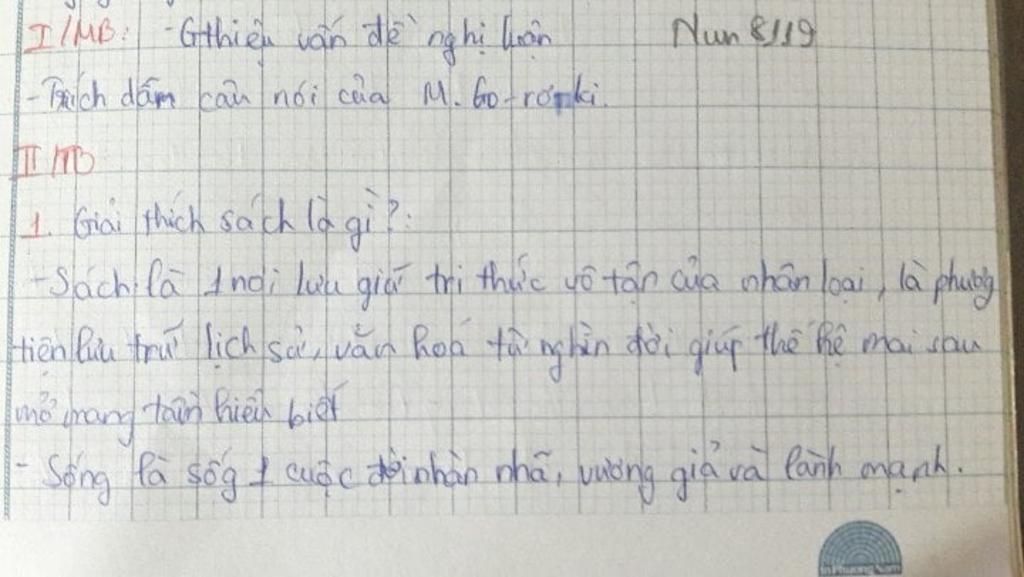 I/MB: - Gthiệu vấn đề nghị luận Nun 8/19
- Trích dẫn câu nói của M. Go-rơ-ki.
II TB
1. Giải thích sách là gì?:
- Sách là 1 nơi lưu giữ tri thức vô tận của nhân loại, là phương
tiện lưu trữ lịch sử, văn hoá từ nghìn đời giúp thế hệ mai sau
mở mang tầm hiểu biết
- Sống là sốg 1 cuộc đời nhàn nhã, vương giả và lành mạnh.